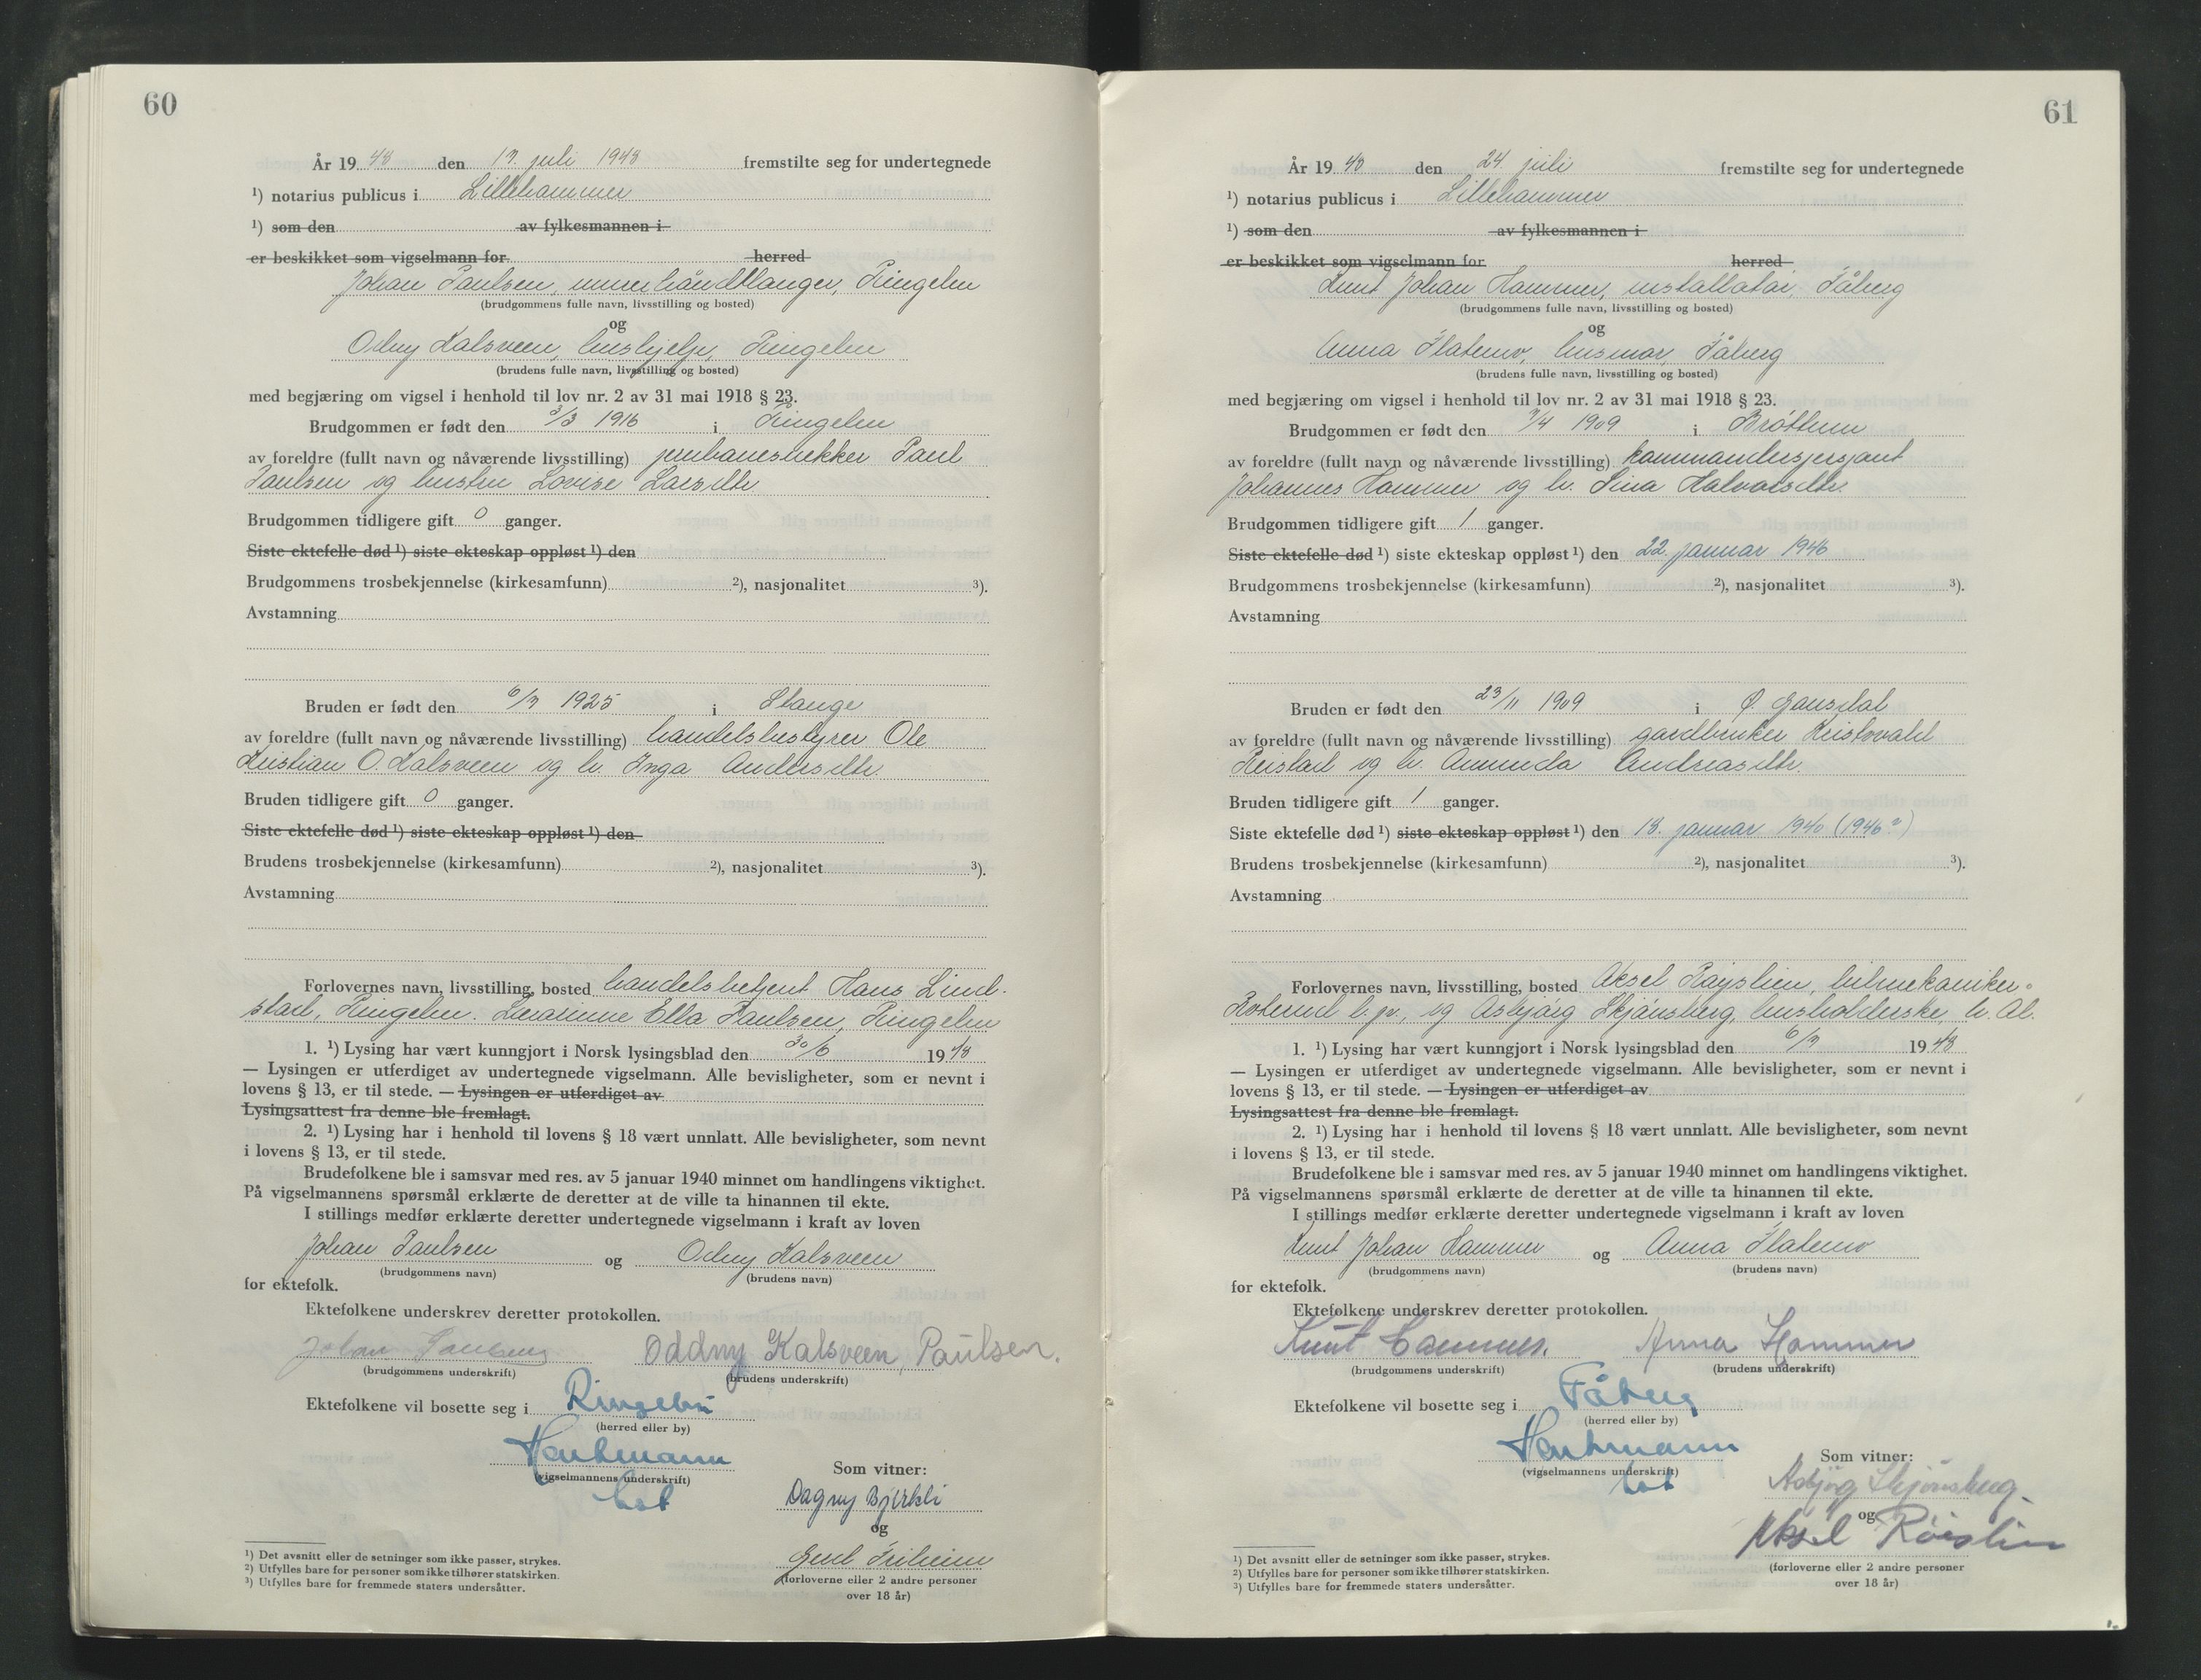 60
År 19 48 den 17. juli 1948 fremstilte seg for undertegnede
¹) notarius publicus i Lillehammer
¹) som den av fylkesmannen i
er beskikket som vigselmann for herred
Johan Paulsen, murerhåndtlanger, Ringebu
(brudgommens fulle navn, livsstilling og bosted)
og
Odny Kalsveen, hushjelp, Ringebu
(brudens fulle navn, livsstilling og bosted)
med begjæring om vigsel i henhold til lov nr. 2 av 31 mai 1918 § 23.
Brudgommen er født den 3/3 1916 i Ringebu
av foreldre (fullt navn og nåværende livsstilling) jernbanestrekker Paul
Paulsen og hustru Lovise Larsdtr.
Brudgommen tidligere gift 0 ganger.
Siste ektefelle død ¹) siste ekteskap oppløst ¹) den
Brudgommens trosbekjennelse (kirkesamfunn) ²), nasjonalitet ³).
Avstamning
Bruden er født den 6/7 1925 i Stange
av foreldre (fullt navn og nåværende livsstilling) handelsbestyrer Ole
Kristian O. Kalsveen og h. Inga Andersdtr.
Bruden tidligere gift 0 ganger.
Siste ektefelle død ¹) siste ekteskap oppløst ¹) den
Brudens trosbekjennelse (kirkesamfunn) ²), nasjonalitet ³).
Avstamning
Forlovernes navn, livsstilling, bosted handelsbetjent Hans Lind-
stad, Ringebu. Ella Paulsen, Ringebu
1. ¹) Lysing har vært kunngjort i Norsk lysingsblad den 30/6 19 48
— Lysingen er utferdiget av undertegnede vigselmann. Alle bevisligheter, som er nevnt i
lovens § 13, er til stede. — Lysingen er utferdiget av
Lysingsattest fra denne ble fremlagt.
2. ¹) Lysing har i henhold til lovens § 18 vært unnlatt. Alle bevisligheter, som nevnt
i lovens § 13, er til stede.
Brudefolkene ble i samsvar med res. av 5 januar 1940 minnet om handlingens viktighet.
På vigselmannens spørsmål erklærte de deretter at de ville ta hinannen til ekte.
I stillings medfør erklærte deretter undertegnede vigselmann i kraft av loven
Johan Paulsen og Odny Kalsveen
(brudgommens navn) (brudens navn)
for ektefolk.
Ektefolkene underskrev deretter protokollen.
Johan Paulsen Oddny Kalsveen, Paulsen.
(brudgommens underskrift) (brudens underskrift)
Ektefolkene vil bosette seg i Ringebu
(herred eller by)
(vigselmannens underskrift)
Som vitner:
Dagny Bjerkli
og
Gerd Friheim
(forloverne eller 2 andre personer
over 18 år)
¹) Det avsnitt eller de setninger som ikke passer, strykes.
²) Utfylles bare for personer som ikke tilhører statskirken.
³) Utfylles bare for fremmede staters undersåtter.
61
År 19 48 den 24. juli fremstilte seg for undertegnede
¹) notarius publicus i Lillehammer
¹) som den av fylkesmannen i
er beskikket som vigselmann for herred
Knut Johan Hammer, installatør, Fåberg
(brudgommens fulle navn, livsstilling og bosted)
og
Anna Flatmo, husmor, Fåberg
(brudens fulle navn, livsstilling og bosted)
med begjæring om vigsel i henhold til lov nr. 2 av 31 mai 1918 § 23.
Brudgommen er født den 7/4 1909 i Brøttum
av foreldre (fullt navn og nåværende livsstilling) kommandersjersjant
Johannes Hammer og h. Sina Halvorsdtr.
Brudgommen tidligere gift 1 ganger.
Siste ektefelle død ¹) siste ekteskap oppløst ¹) den 22. januar 1946
Brudgommens trosbekjennelse (kirkesamfunn) ²), nasjonalitet ³).
Avstamning
Bruden er født den 23/11 1909 i Ø. Gausdal
av foreldre (fullt navn og nåværende livsstilling) gardbruker Kristovald
og h. Amunda Andreasdtr.
Bruden tidligere gift 1 ganger.
Siste ektefelle død ¹) siste ekteskap oppløst ¹) den 18. januar 1940 (1946?)
Brudens trosbekjennelse (kirkesamfunn) ²), nasjonalitet ³).
Avstamning
Forlovernes navn, livsstilling, bosted Aksel Røyslien, bilmekaniker
og Asbjørg Skjønsberg, husholderske,
1. ¹) Lysing har vært kunngjort i Norsk lysingsblad den 6/7 19 48
— Lysingen er utferdiget av undertegnede vigselmann. Alle bevisligheter, som er nevnt i
lovens § 13, er til stede. — Lysingen er utferdiget av
Lysingsattest fra denne ble fremlagt.
2. ¹) Lysing har i henhold til lovens § 18 vært unnlatt. Alle bevisligheter, som nevnt
i lovens § 13, er til stede.
Brudefolkene ble i samsvar med res. av 5 januar 1940 minnet om handlingens viktighet.
På vigselmannens spørsmål erklærte de deretter at de ville ta hinannen til ekte.
I stillings medfør erklærte deretter undertegnede vigselmann i kraft av loven
Knut Johan Hammer og Anna Flatmo
(brudgommens navn) (brudens navn)
for ektefolk.
Ektefolkene underskrev deretter protokollen.
Knut Hammer. Anna Hammer
(brudgommens underskrift) (brudens underskrift)
Ektefolkene vil bosette seg i Fåberg
(herred eller by)
(vigselmannens underskrift)
Som vitner:
Asbjørg Skjønsberg.
og
Aksel Röislien
(forloverne eller 2 andre personer
over 18 år)
¹) Det avsnitt eller de setninger som ikke passer, strykes.
²) Utfylles bare for personer som ikke tilhører statskirken.
³) Utfylles bare for fremmede staters undersåtter.